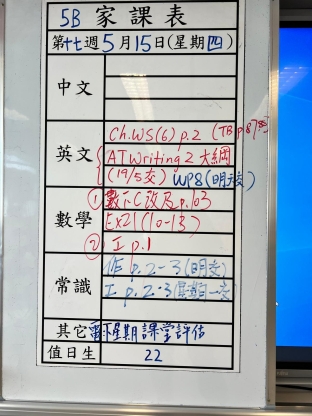 5B 家課表
第十七週5月15日(星期四)
中文
英文
Ch.WS(6) p.2 (TB p.87
AT Writing 2 大綱
(19/5交) WP8(明交)
數學
① 數下C 改及 p.103
Ex21(10-13)
② I p.1
常識
作 p.2-3(明交)
I p.2-3(星期一交)
其它
星期課堂評估
值日生 22